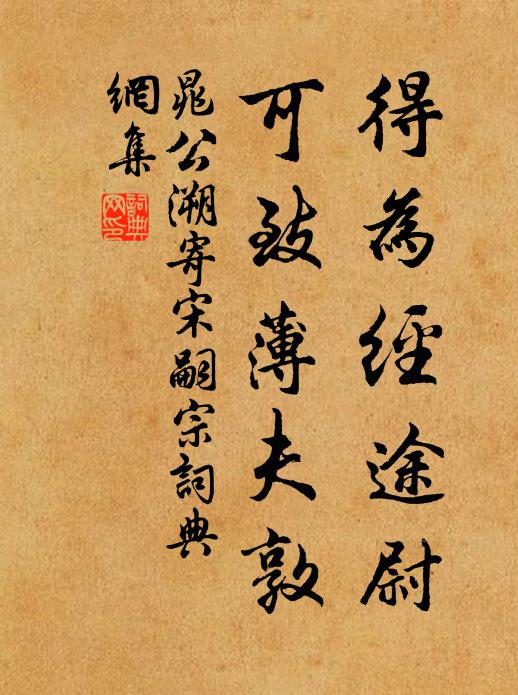 得為經途尉
可致薄夫敦
晁公溯寄宋嗣宗詞典
網集
詞典
网印